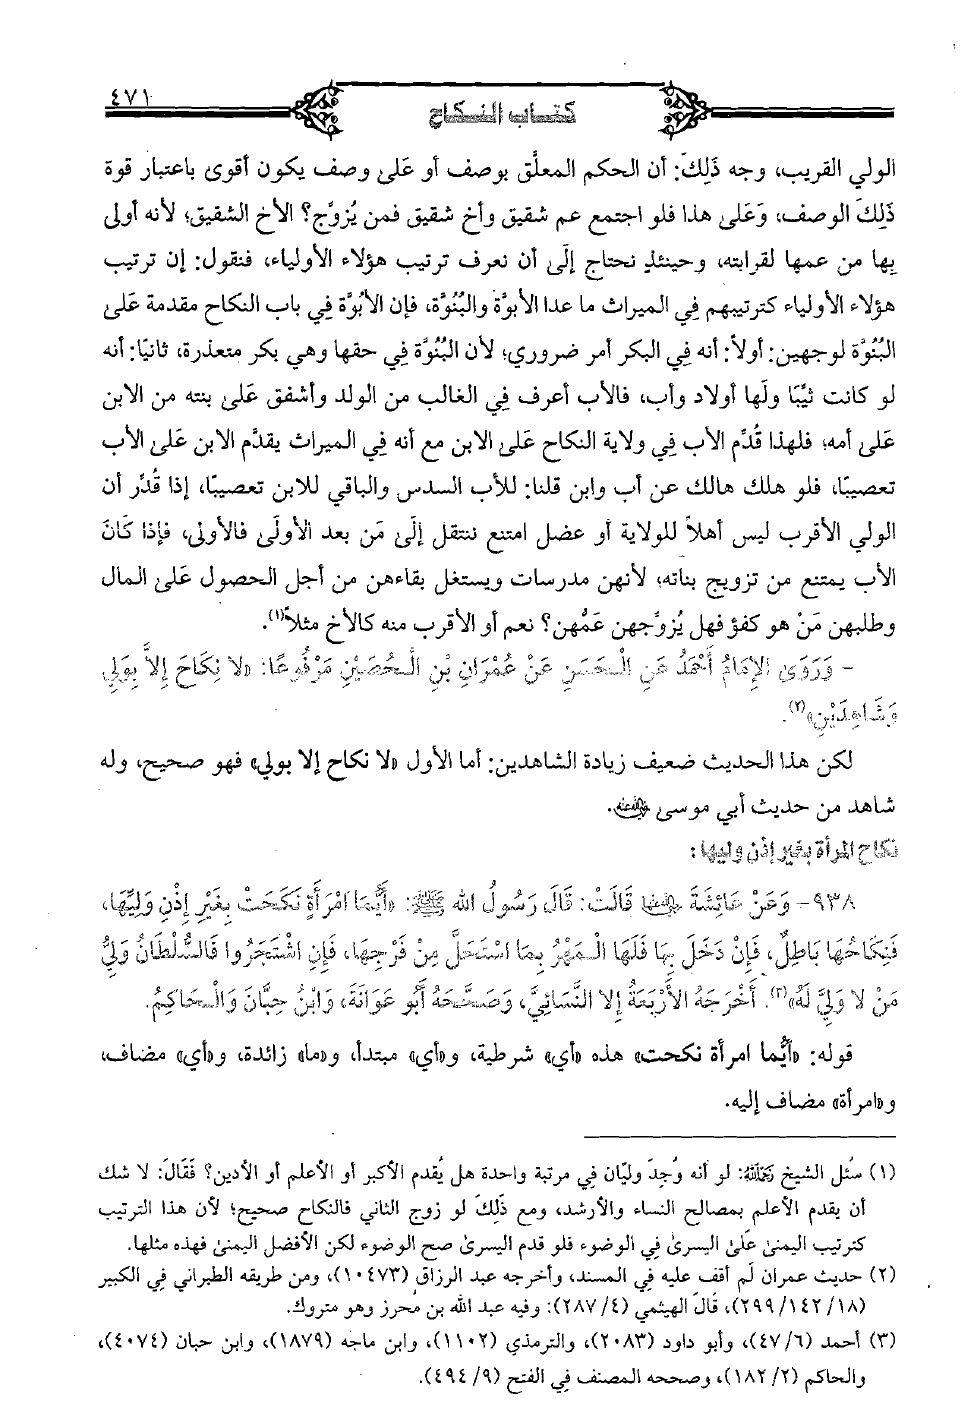 ٤٧١
كتاب النكاح
الولي القريب، وجه ذَلِكَ: أن الحكم المعلَّق بوصف أو عَلى وصف يكون أقوى باعتبار قوة
ذَلِكَ الوصف، وَعَلى هذا فلو اجتمع عم شقيق وأخ شقيق فمن يُزوَّج؟ الأخ الشقيق؛ لأنه أولى
بِها من عمها لقرابته، وحينئذٍ نحتاج إلَى أن نعرف ترتيب هؤلاء الأولياء، فنقول: إن ترتيب
هؤلاء الأولياء كترتيبهم فِي الميراث ما عدا الأبوَّة والبُنُوَّة، فإن الأبُوَّة فِي باب النكاح مقدمة عَلىٰ
البُنُوَّة لوجهين: أولاً: أنه فِي البكر أمر ضروري؛ لأن البُنُوَّة فِي حقها وهي بكر متعذرة، ثانيًا: أنه
لو كانت ثيِّبًا ولَها أولاد وأب، فالأب أعرف فِي الغالب من الولد وأشفق عَلىٰ بنته من الابن
عَلىٰ أمه؛ فلهذا قُدِّم الأب فِي ولاية النكاح عَلىٰ الابن مع أنه فِي الميراث يقدَّم الابن عَلىٰ الأب
تعصيبًا، فلو هلك هالك عن أب وابن قلنا: للأب السدس والباقي للابن تعصيبًا، إذا قُدِّر أن
الولي الأقرب ليس أهلاً للولاية أو عضل امتنع ننتقل إلَىٰ مَن بعد الأولَىٰ فالأولى، فإذا كَانَ
الأب يمتنع من تزويج بناته؛ لأنهن مدرسات ويستغل بقاءهن من أجل الحصول عَلىٰ المال
وطلبهن مَنْ هو كفؤ فهل يُزوِّجهن عَمُّهن؟ نعم أو الأقرب منه كالأخ مثلاً(١).
- وَرَوَىٰ الإِمَامُ أَحْمَدُ عَنِ الْحَسَنِ عَنْ عُمْرَانِ بْنِ الْحُصَيْنِ مَرْفُوعًا: «لا نِكَاحَ إِلاَّ بِوَلِيٍّ
وَشَاهِدَيْنِ»(٢).
لكن هذا الحديث ضعيف زيادة الشاهدين: أما الأول «لا نكاح إلا بولي» فهو صحيح، وله
شاهد من حديث أبي موسى رضي الله عنه.
نكاح المرأة بغير إذن وليها:
٩٣٨- وَعَنْ عَائِشَةَ رضي الله عنها قَالَتْ: قَالَ رَسُولُ الله ﷺ: «أَيُّمَا امْرَأَةٍ نَكَحَتْ بِغَيْرِ إِذْنِ وَلِيِّهَا،
فَنِكَاحُهَا بَاطِلٌ، فَإِنْ دَخَلَ بِهَا فَلَهَا الْمَهْرُ بِمَا اسْتَحَلَّ مِنْ فَرْجِهَا، فَإِنِ اشْتَجَرُوا فَالسُّلْطَانُ وَلِيُّ
مَنْ لا وَلِيَّ لَهُ»(٣). أَخْرَجَهُ الأَرْبَعَةُ إِلا النَّسَائِيَّ، وَصَحَّحَهُ أَبُو عَوَانَةَ، وَابْنُ حِبَّانَ وَالْحَاكِمُ.
قوله: «أيُّما امرأة نكحت» هذه «أي» شرطية، و«أي» مبتدأ، و«ما» زائدة، و«أي» مضاف،
و«امرأة» مضاف إليه.
(١) سُئل الشيخ رحمه الله: لو أنه وُجِدَ وليّان فِي مرتبة واحدة هل يُقدم الأكبر أو الأعلم أو الأدين؟ فَقَالَ: لا شك
أن يقدم الأعلم بمصالح النساء والأرشد، ومع ذَلِكَ لو زوج الثاني فالنكاح صحيح؛ لأن هذا الترتيب
كترتيب اليمنىٰ عَلىٰ اليسرىٰ فِي الوضوء فلو قدم اليسرىٰ صح الوضوء لكن الأفضل اليمنىٰ فهذه مثلها.
(٢) حديث عمران لَم أقف عليه فِي المسند، وأخرجه عبد الرزاق (١٠٤٧٣)، ومن طريقه الطبراني فِي الكبير
(١٨/ ١٤٢/ ٢٩٩)، قَالَ الهيثمي (٤/ ٢٨٧): وفيه عبد الله بن مُحرز وهو متروك.
(٣) أحمد (٦/ ٤٧)، وأبو داود (٢٠٨٣)، والترمذي (١١٠٢)، وابن ماجه (١٨٧٩)، وابن حبان (٤٠٧٤)،
والحاكم (٢/ ١٨٢)، وصححه المصنف فِي الفتح (٩/ ٤٩٤).